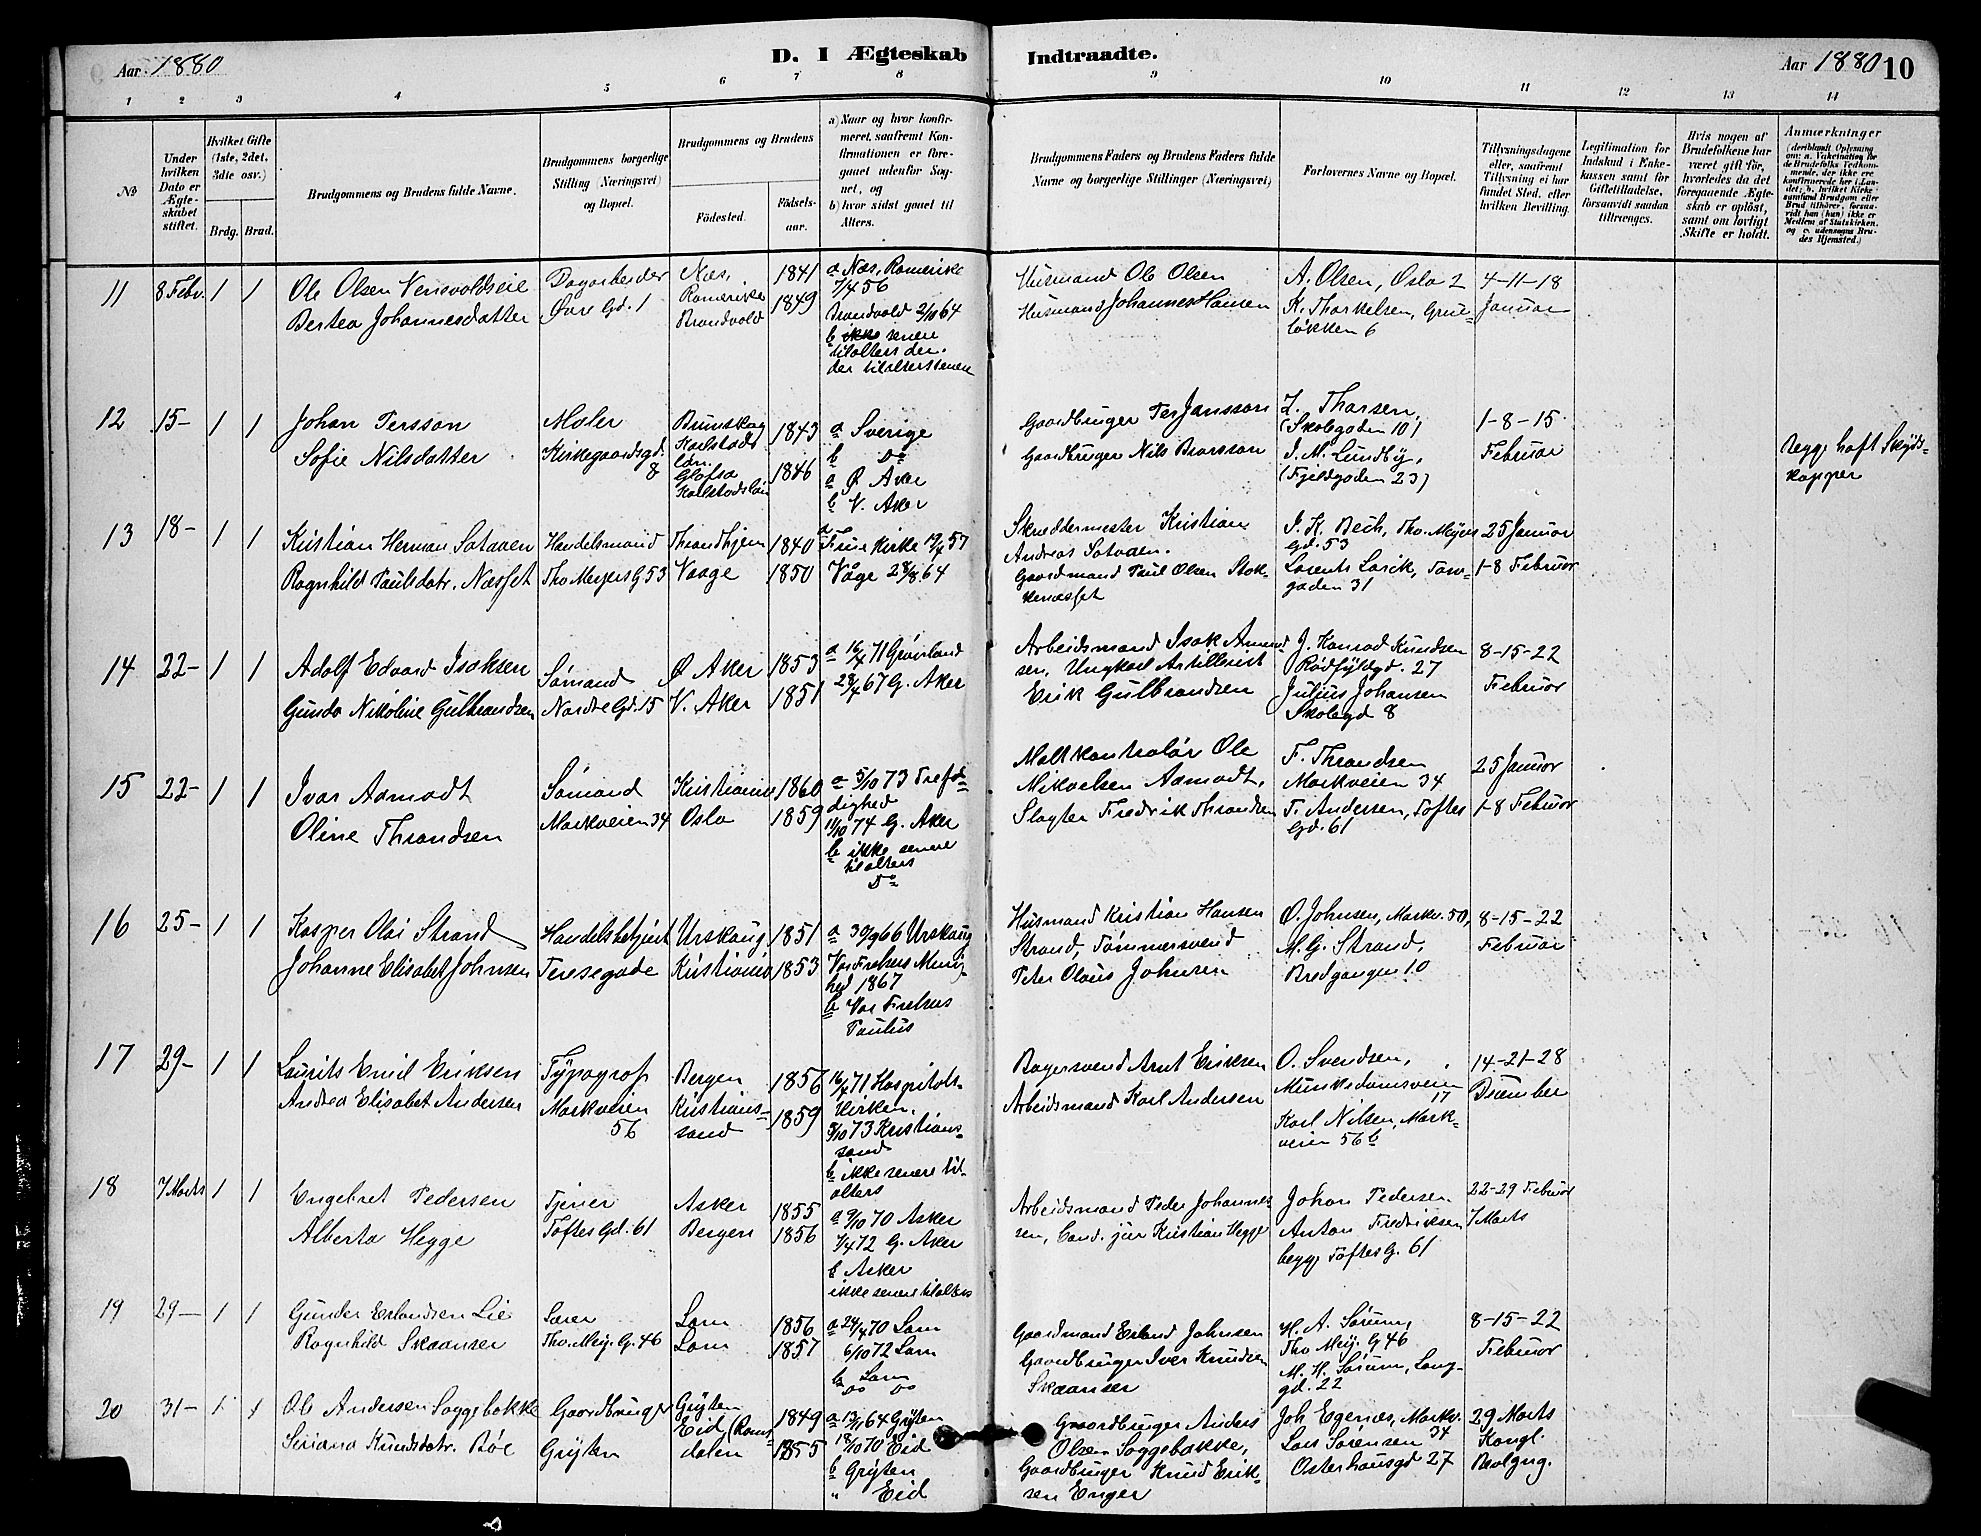 Aar 1880
D. I Ægteskab Indtraadte.
Aar 1880 10
1 2 3 4 5 6 7 8 9 10 11 12 13 14
№
Under hvilken Dato er Ægteskabet stiftet.
Hvilket Gifte (1ste, 2det, 3die osv.)
Brdg. Brud.
Brudgommens og Brudens fulde Navne.
Brudgommens borgerlige Stilling (Næringsvei) og Bopæl.
Brudgommens og Brudens
Födested.
Födselsaar.
a) Naar og hvor konfirmeret, saafremt Konfirmationen er foregaaet udenfor Sognet, og
b) hvor sidst gaaet til Alters.
Brudgommens Faders og Brudens Faders fulde Navne og borgerlige Stillinger (Næringsvei)
Forlovernes Navne og Bopæl.
Tillysningsdagene eller, saafremt Tillysning ei har fundet Sted, efter hvilken Bevilling.
Legitimation for Indskud i Enkekassen samt for Giftetilladelse, forsaavidt saadan tiltrænges.
Hvis nogen af Brudefolkene har været gift för, hvorledes da det foregaaende Ægteskab er oplöst, samt om lovligt Skifte er holdt.
Anmærkninger (deriblandt Oplysning om: a. Vakcination for de Brudefolks Vedkommende, der ikke ere konfirmerede her i Landet; b. hvilket Kirkesamfund Brudgom eller Brud tilhörer, forsaavidt han (hun) ikke er Medlem af Statskirken, og c. udensogns Brudes Hjemsted.)
11 8 Febr. 1 1
Ole Olsen Vensvoldseie
Bertea Johannesdatter
Dagarbeider
Øvre Gd. 1
Næs, Romerike
Brandvold
1841
1849
a Næs, Romerike
7/4 56
Brandvold 2/10 64
b ikke senere
tilalters der.
der tilalters senere
Husmand Ole Olsen
Husmand Johannes Hansen
A. Olsen, Oslo 2
K. Thorkelsen, Grue-
løkken 6
4-11-18
Januar
12 15- 1 1
Johan Persson
Sofie Nilsdatter
Maler
Kirkegaardsgd.
8
Brunskog
Karlstads
län.
Glafva
Karlstadslän
1843
1846
a Sverige
b Do
a Ø. Aker
b V. Aker
Gaardbruger Per Jansson
Gaardbruger Nils Brorsson
L. Thorsen,
(Skolegaden 10)
J. M. Lundby,
(Fjeldgaden 23)
1-8-15
Februar
Begge haft Skyds-
kopper
13 18- 1 1
Kristian Herman Sataaen
Ragnhild Paulsdatr. Næsset
Handelsmand
Tho Meyers G 53
Throndhjem
Vaage
1840
1850
a Frue Kirke 19/4 57
Våge 28/8 64
Skreddermester Kristian
Andreas Sataaen.
Gaardmand Paul Olsen Stok-
kenæsset
J. K. Bech, Tho. Meyers
Gd. 53
Lorents Larik, Torv-
gaden 31
25 Januar
1-8 Februar
14 22- 1 1
Adolf Edvard Isaksen
Gunda Nikoline Gulbrandsen
Sømand
Nordre Gd. 15
Ø Aker
V. Aker
1853
1851
a 16/4 71 Grønland
28/4 67 G. Aker
Arbeidsmand Isak Amund
sen. Ungkarl Artillerist
Erik Gulbrandsen
J. Konrad Knudsen
Rødfyldgd. 27
Julius Johansen
Skolegd 8
8-15-22
Februar
15 22- 1 1
Ivar Aamodt
Oline Throndsen
Sømand
Markveien 34
Kristiania
Oslo
1860
1859
a 5/10 73 Trefol-
dighed
11/10 74 G. Aker
b ikke senere
tilalters
Do
Maltkontrolør Ole
Mikaelsen Aamodt.
Slagter Fredrik Throndsen
F. Throndsen
Markveien 34
F. Andersen, Toftes
Gd. 61
25 Januar
1-8 Februar
16 25- 1 1
Kasper Olai Strand
Johanne Elisabet Johnsen
Handelsbetjent
Teresegade
Urskoug
Kristiania
1851
1853
a 30/9 66 Urskoug
Vor Frelsers Menig-
hed 1867
b Vor Frelsers
Paulus
Husmand Kristian Hansen
Strand, Tømmersvend
Peter Olaus Johnsen
O. Johnsen, Markv. 50,
M. G. Strand,
Bredgangen 10
8-15-22
Februar
17 29- 1 1
Laurits Emil Eriksen
Andrea Elisabet Andersen
Typograf
Markveien
56
Bergen
Kristians-
sand
1856
1859
16/4 71 Hospitals-
kirken.
5/10 73 Kristians-
sand
b ikke senere til-
alters
Bagersvend Arnt Eriksen
Arbeidsmand Karl Andersen
O. Svendsen,
Munkedamsveien
17
Karl Nilsen, Mark-
veien 56 b
14-21-28
December
18 7 Marts 1 1
Engebret Pedersen
Alberta Hegge
Tjener
Toftes Gd. 61
Asker
Bergen
1855
1856
a 9/10 70 Asker
7/4 72 G. Aker
b Asker
ikke senere tilalters
Arbeidsmand Peder Johannes-
sen, Cand. jur Kristian Hegge
Johan Pedersen
Anton Fredriksen
begge Toftes G. 61
22-29 Februar
7 Marts
19 29- 1 1
Gunder Erlandsen Lie
Ragnhild Skaanser
Tho. Mey. G. 46
Lom
Lom
1856
1857
a 24/4 70 Lom
6/10 72 Lom
b Lom
Do Do
Gaardmand Erland Johnsen
Gaardbruger Iver Knudsen
Skaanser
H. A. Sørum,
Tho Mey. G 46
M. H. Sørum, Lang-
gd. 22
8-15-22
Februar
20 31- 1 1
Ole Andersen Soggebakke
Seriana Knudsdatr. Bøe
Gaardbruger
Gryten
Gryten
Eid (Roms-
dalen
1849
1855
a 13/11 64 Gryten
18/10 70 Eid
b Gryten
" Eid
Gaardbruger Anders
Olsen Soggebakke,
Gaardbruger Knud Erik-
sen Enger
Joh Egenæs, Markv.
34
Lars Sørensen
Osterhausgd 27
29 Marts
Kongl.
Bevlgng.